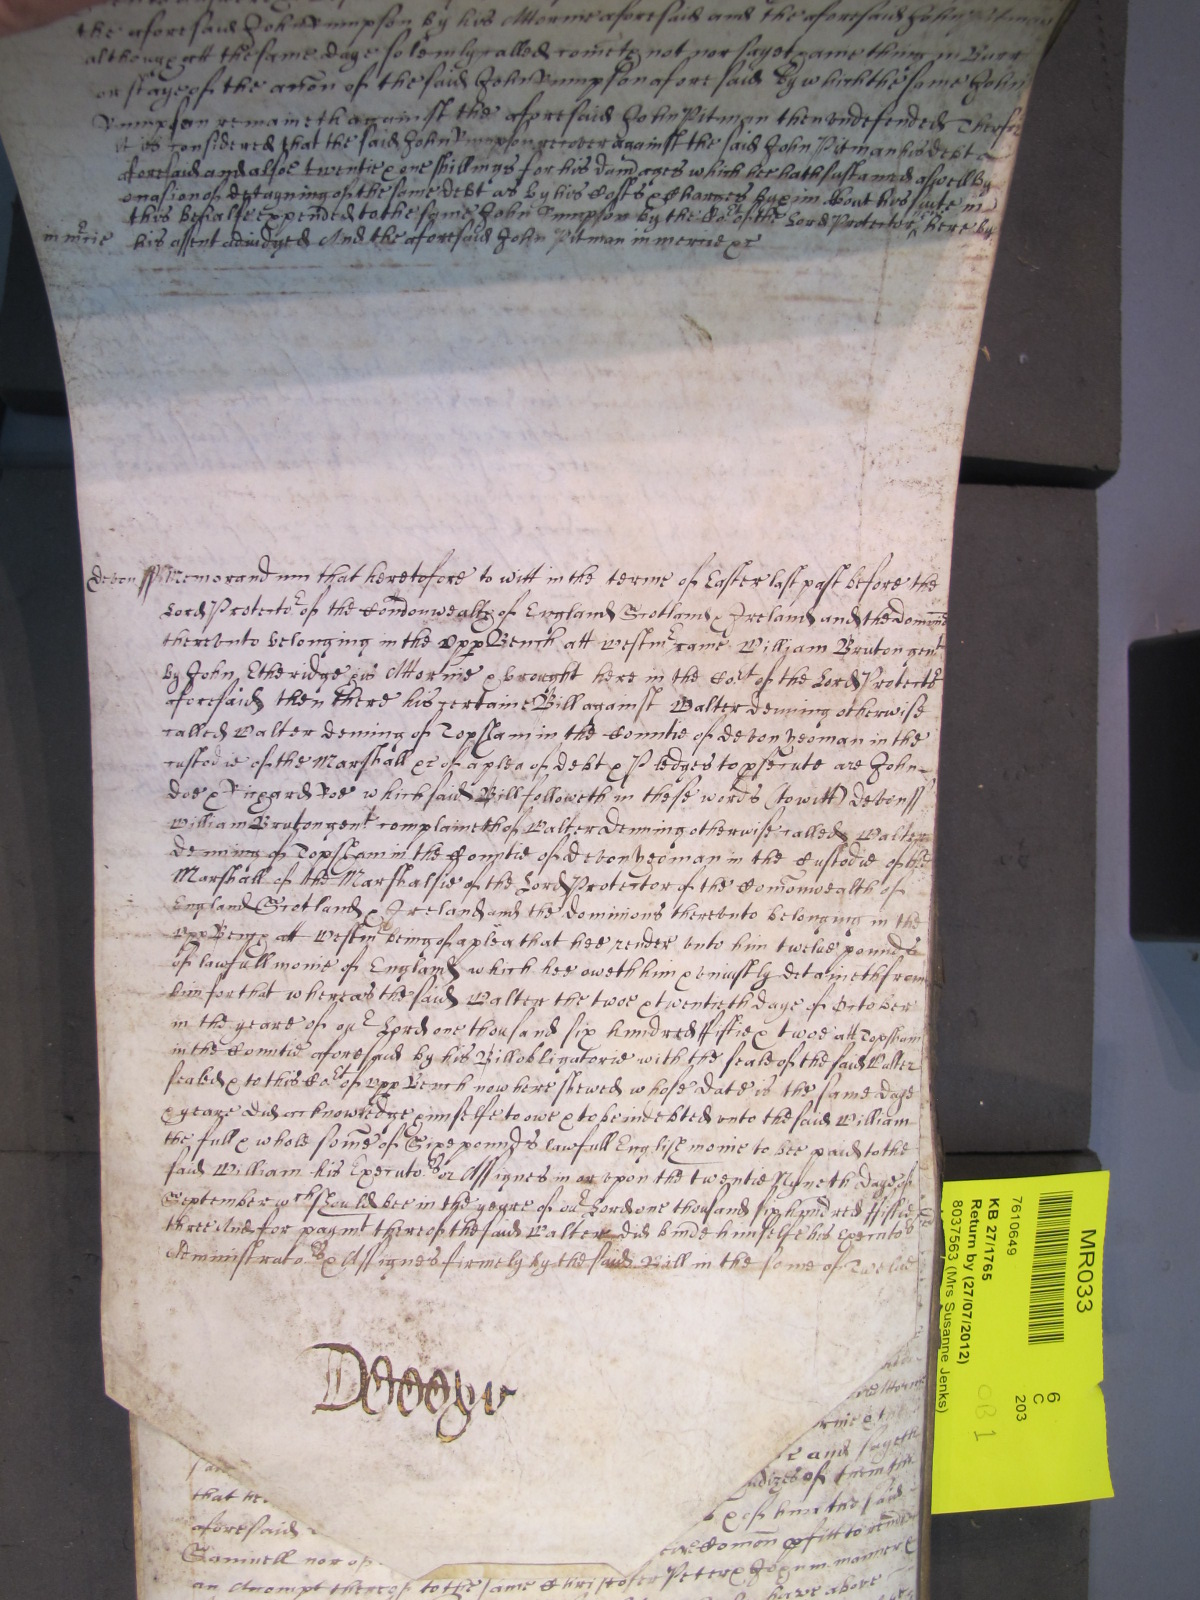 the aforesaid John Simpson by his Attornie aforesaid and the aforesaid John Pitman
although att the same daye solemly called cometh not nor sayet anie thing in Barr
or stay of the accon of the said John Simpson aforesaid By which the same John
Simpson remaineth against the aforesaid John Pitman then undefended Therfore
it is considered that the said John Simpson recover against the said John Pitman his debt a
foresaid and alsoe twentie & one shillings for his damages which hee hath sustained aswell by
occasion of detayning of the same debt as by his Costs & Charges by him about his suite in
this behalfe expended to the same John Simpson by the Cort of the Lord Protector here by
in mrcie his assent adiudged And the aforesaid John Pitman in mercie &c
Devon ss Memorandum that heretofore to witt in the terme of Easter last past before the
Lord Protector of the Comonwealth of England Scotland & Ireland and the dominions
thereunto belonging in the Upp Bench att Westmr came William Bruton gent
by John Etheridge his Attornie & brought here in the Cort of the Lord Protector
aforesaid then there his certaine Bill against Walter Deming otherwise
called Walter Deming of Topsham in the Countie of Devon yeoman in the
custodie of the Marshall &c of a plea of debt & Pledges to psecute are John
Doe & Richard Roe which said Bill followeth in these words (to witt) Devon ss
William Bruton gent complaineth of Walter Deming otherwise called Walter
Deming of Topsham in the Countie of Devon yeoman in the Custodie of the
Marshall of the Marshalsie of the Lord Protector of the Comonwealth of
England Scotland & Ireland and the dominions thereunto belonging in the
Upp Bench att Westmr being of a plea that hee render unto him twelve pounds
of lawfull monie of England which hee oweth him & uniustly detaineth from
him for that whereas the said Walter the twoe & twentieth daye of October
in the yeare of our Lord one thousand six hundred fiftie & twoe att Topsham
in the Countie aforesaid by his Bill obligatorie with the seale of the said Walter
sealed & to this Cort of Upp Bench now here shewed whose date is the same daye
& yeare did acknowledge himselfe to owe & to be indebted unto the said William
the full & whole some of Sixe pounds lawfull English monie to bee paid to the
said William his Executors or Assignes in or upon the twentie Nyneth daye of
September wch should bee in the yeare of our Lord one thousand six hundred fiftie
three And for paymt thereof the said Walter did binde himselfe his Executors
Administrators & Assignes firmely by the said Bill in the some of Twelve
that he
aforesaid
Samuell nor
an Accompt thereof to the same Christofer Peter & John in manner &
and sayeth
of them the
have above
MR033
6
C
203
7610649
KB 27/1765
Return by (27/07/2012)
8037563 (Mrs Susanne Jenks)
OB 1